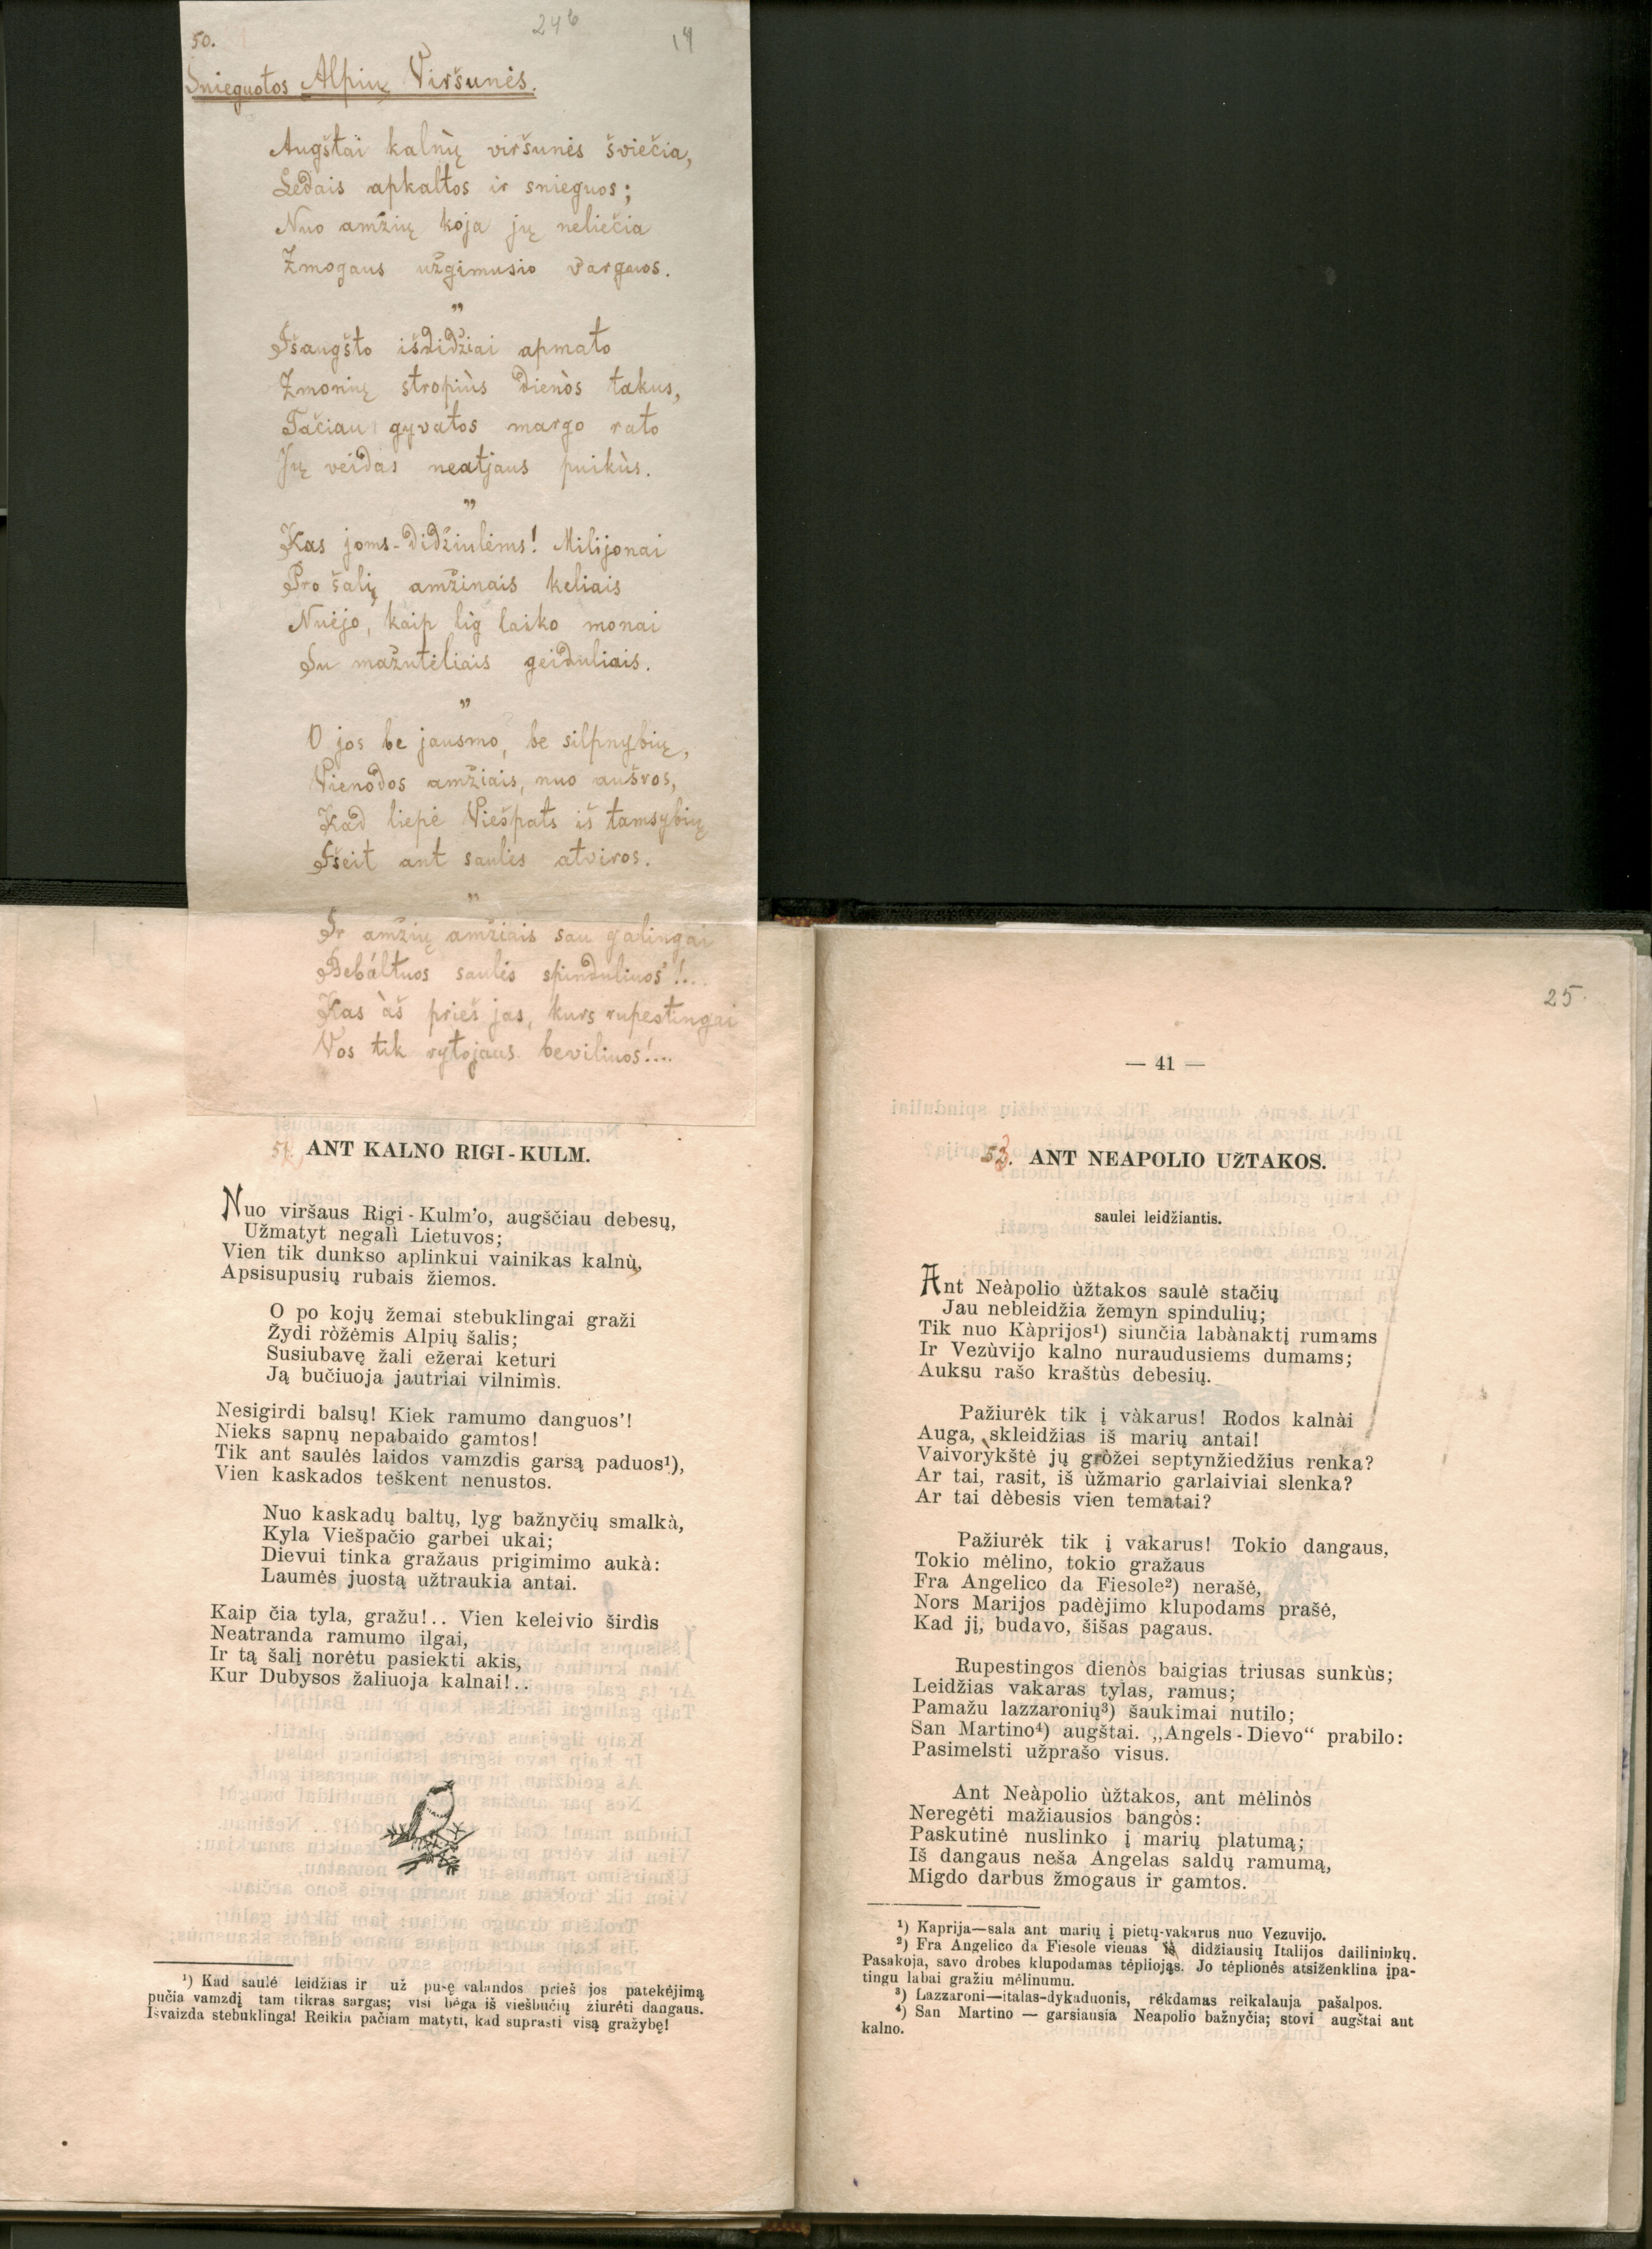 50.
246
14
Snieguotos Alpių Viršunės.
Augštai kalnų̀ viršunės šviečia,
Ledais apkaltos ir snieguos;
Nuo amžių koja jų neliečia
Žmogaus užgimusio varguos.
„
Išaugšto išdidžiai apmato
Žmonių stropiùs dienòs takus,
Tačiau gyvatos margo rato
Jų veidas neatjaus puikùs.
„
Kas joms-didžiulėms! Milijonai
Pro šalį amžinais keliais
Nuėjo, kaip lig laiko monai
Su mažutėliais geiduliais.
„
O jos be jausmo, be silpnybių,
Vienodos amžiais, nuo aušros,
Kad liepė Viešpats iš tamsybių
Išeit ant saulės atviros.
„
Ir amžių amžiais sau galingai
Bebáltuos saulės spinduliuos'!...
Kas àš prieš jas, kurs rupestingai
Vos tik rytojaus beviliuos!...
51. ANT KALNO RIGI-KULM.
Nuo viršaus Rigi-Kulm'o, augščiau debesų,
Užmatyt negalì Lietuvos;
Vien tik dunkso aplinkui vainikas kalnų̀,
Apsisupusių rubais žiemos.
O po kojų žemai stebuklingai graži
Žydi ròžėmis Alpių šalis;
Susiubavę žali ežerai keturi
Ją bučiuoja jautriai vilnimìs.
Nesigirdi balsų! Kiek ramumo danguos'!
Nieks sapnų nepabaido gamtos!
Tik ant saulės laidos vamzdis garsą paduos¹),
Vien kaskados teškent nenustos.
Nuo kaskadų baltų, lyg bažnyčių smalkà,
Kyla Viešpačio garbei ukai;
Dievui tinka gražaus prigimimo aukà:
Laumės juostą užtraukia antai.
Kaip čia tyla, gražu!.. Vien keleivio širdìs
Neatranda ramumo ilgai,
Ir tą šalį norėtu pasiekti akis,
Kur Dubysos žaliuoja kalnai!..
¹) Kad saulė leidžias ir už pusę valandos prieš jos patekėjimą
pučia vamzdį tam tikras sargas; visi bėga iš viešbučių žiurėti dangaus.
Išvaizda stebuklinga! Reikia pačiam matyti, kad suprasti visą gražybę!
25.
— 41 —
53. ANT NEAPOLIO UŽTAKOS.
saulei leidžiantis.
Ant Neàpolio ùžtakos saulė stačių
Jau nebleidžia žemyn spindulių;
Tik nuo Kàprijos¹) siunčia labànaktį rumams
Ir Vezùvijo kalno nuraudusiems dumams;
Auksu rašo kraštùs debesių.
Pažiurėk tik į vàkarus! Rodos kalnài
Auga, skleidžias iš marių antai!
Vaivorỳkštė jų gròžei septynžiedžius renka?
Ar tai, rasit, iš ùžmario garlaiviai slenka?
Ar tai dėbesis vien tematai?
Pažiurėk tik į vakarus! Tokio dangaus,
Tokio mėlino, tokio gražaus
Fra Angelico da Fiesole²) nerašė,
Nors Marijos padėjimo klupodams prašė,
Kad jį, budavo, šišas pagaus.
Rupestingos dienòs baigias triusas sunkùs;
Leidžias vakaras tylas, ramus;
Pamažu lazzaronių³) šaukimai nutilo;
San Martino⁴) augštai. „Angels-Dievo“ prabilo:
Pasimelsti užprašo visus.
Ant Neàpolio ùžtakos, ant mėlinòs
Neregėti mažiausios bangòs:
Paskutinė nuslinko į marių platumą;
Iš dangaus neša Angelas saldų ramumą,
Migdo darbus žmogaus ir gamtos.
¹) Kaprija—sala ant marių į pietų-vakarus nuo Vezuvijo.
²) Fra Angelico da Fiesole vienas iš didžiausių Italijos dailininkų.
Pasakoja, savo drobes klupodamas tėpliojąs. Jo tėplionės atsiženklina įpa-
tingu labai gražiu mėlinumu.
³) Lazzaroni—italas-dykaduonis, rėkdamas reikalauja pašalpos.
⁴) San Martino — garsiausia Neapolio bažnyčia; stovi augštai ant
kalno.